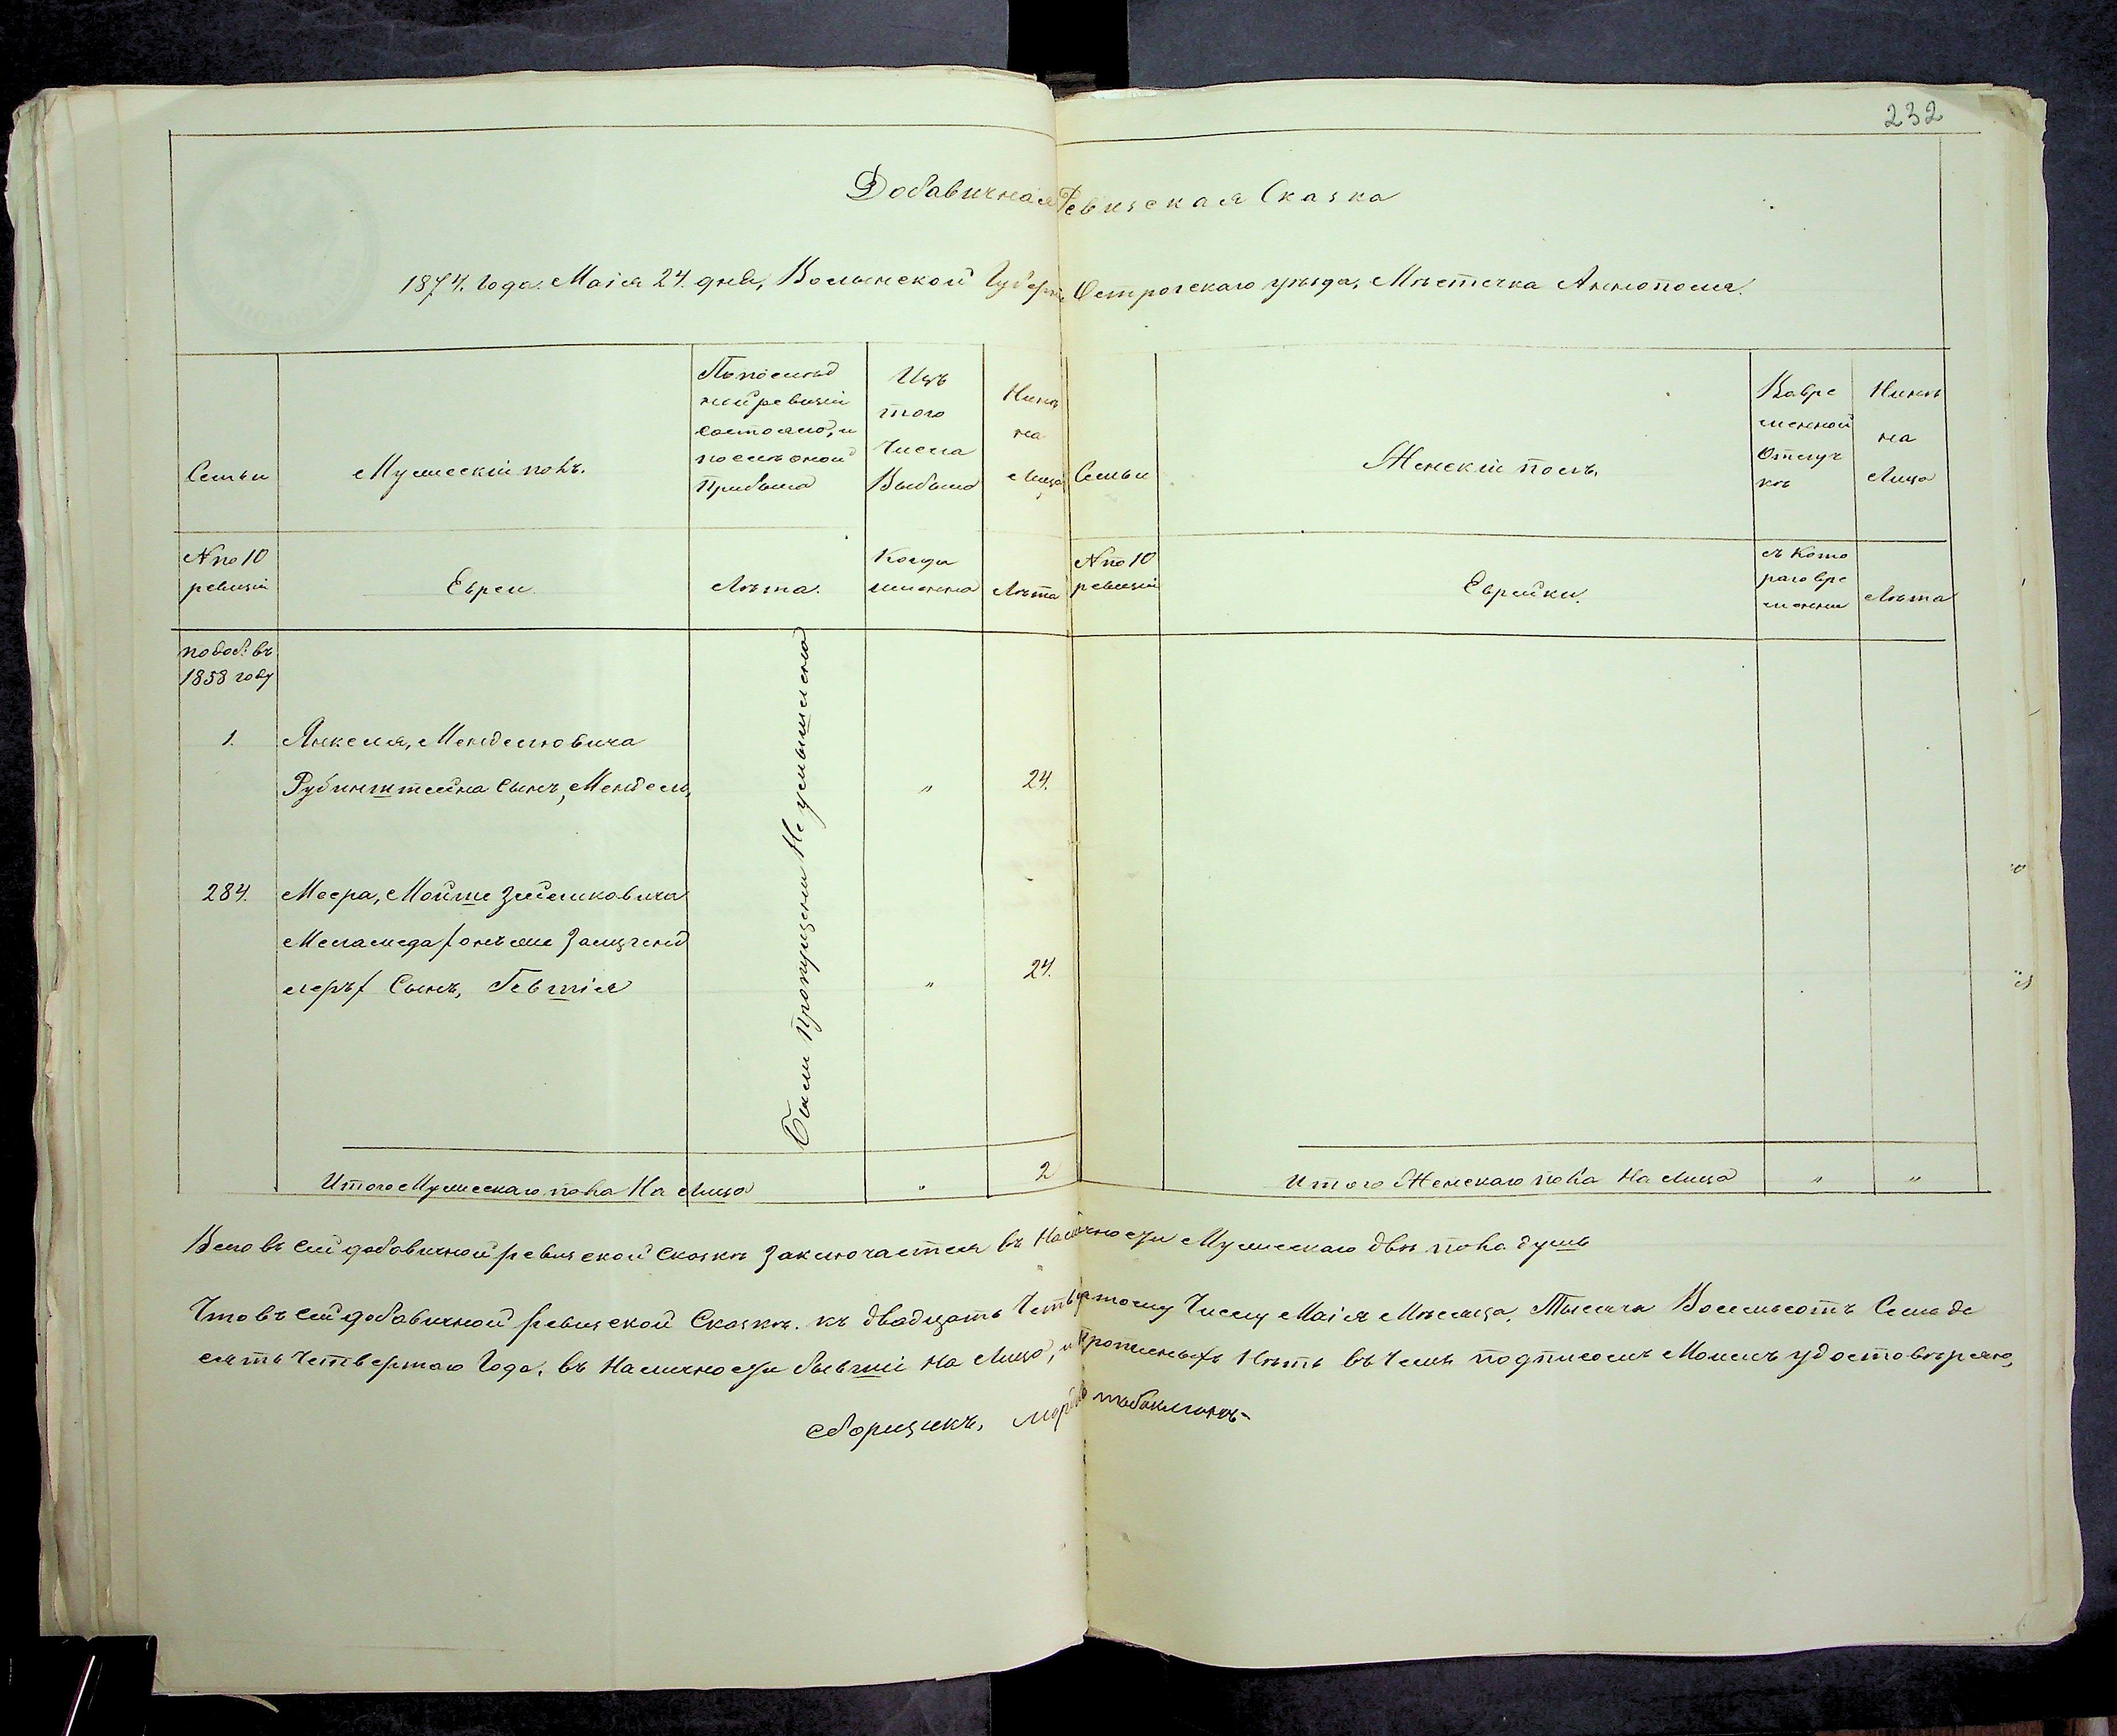 232
Добавичная Ревизская Сказка
1874. Года. Маія 24. дня, Волынской Губерніи Острогскаго уѣзда, Мѣстечка Аннополя.
Семьи
Мужескій полъ.
По послѣд
ней ревизіи
состояло, и
послѣ оной
Прибыло
Изъ
того
Числа
Выбыло
Нынѣ
на
Лицо
Семьи
Женскій полъ.
Вовре
менной
Отлуч
кѣ
Нынѣ
на
Лицо
№ по 10
ревизіи
Евреи
Лѣта.
Когда
именно
Лѣта
№ по 10
ревизіи
Еврейки.
съ Кото
раго вре
мени
Лѣта
по доб: въ
1858 году
1. Янкеля, Менделіовича
Рубинштейна Сынъ, Мендель, " 24.
284. Меера, Мойше Зейликовича
Меламеда / онъ же
леръ / Сынъ, " 24.
Были пропущены Не умышлено
Итого Мужескаго пола На Лицо " 2
Итого Женскаго пола На Лицо " "
Всего въ сей добавичной ревизской сказкѣ заключается въ Наличности Мужескаго двѣ пола душъ
Что въ сей добавичной ревизской Сказкѣ. къ двадцать Четвертому Числу Маія Мѣсяца, Тысяча Восемьсотъ Семьде
сятъ Четвертаго Года. въ Наличности бывшіи на Лицо, и Нѣтъ въ Чемъ подписомъ Моимъ удостовѣряю,
сборщикъ,